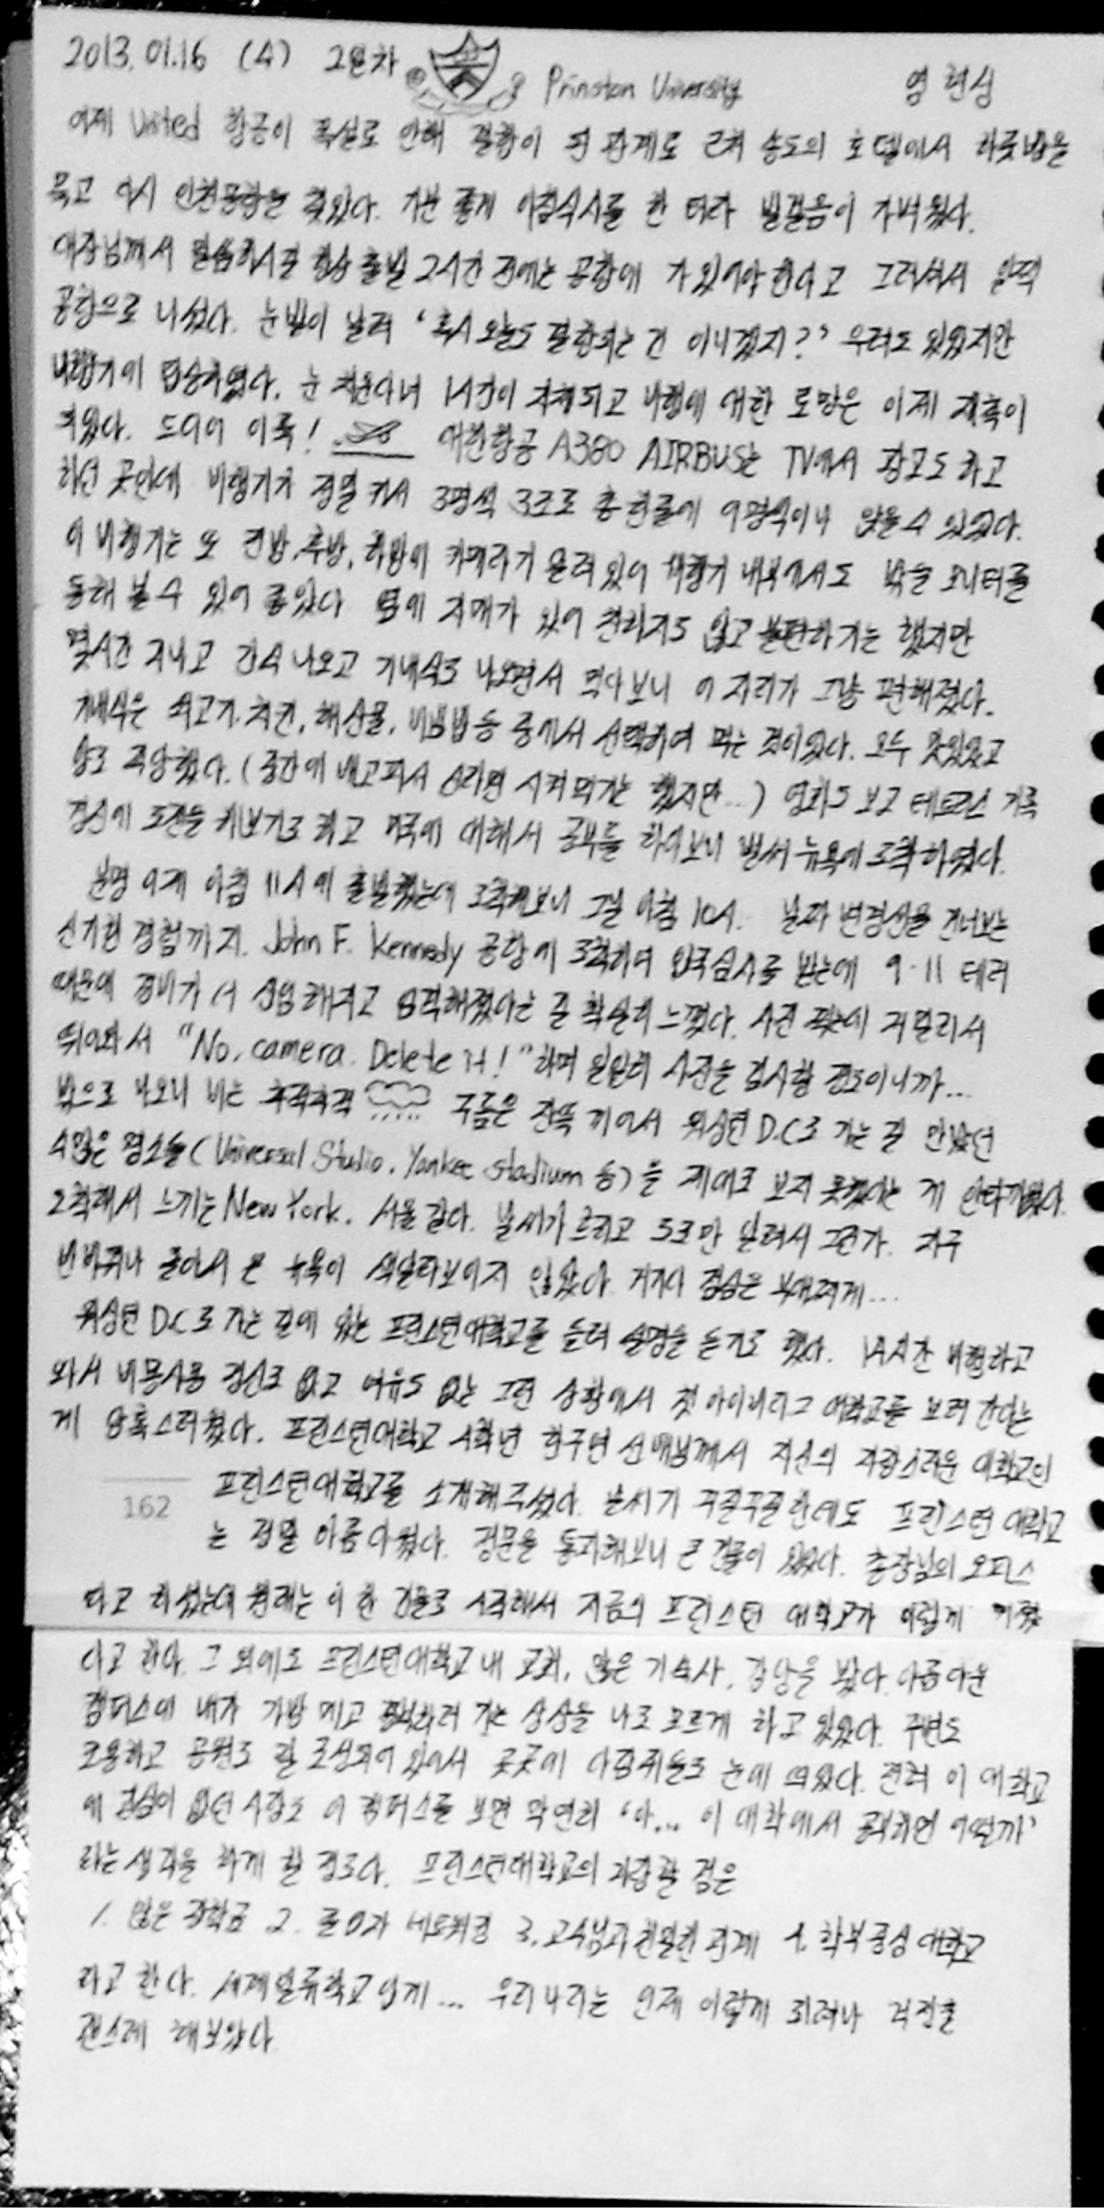 2013. 01. 16 (수) 2일차 Prinston University 염현성
어제 United 항공이 폭설로 인해 결항이 된 관계로 근처 송도의 호텔에서 하룻밤을
묵고 다시 인천공항을 찾았다. 기분 좋게 아침식사를 한 터라 발걸음이 가벼웠다.
대장님께서 말씀하시길 항상 출발 2시간 전에는 공항에 가있어야 한다고 그러셔서 일찍
공항으로 나섰다. 눈발이 날려 '혹시 오늘도 결항되는 건 아니겠지?' 우려도 있었지만
비행기에 탑승하였다. 눈 치운다녀 1시간이 지체되고 비행에 대한 로망은 이제 재촉이
되었다. 드디어 이륙! 대한항공 A380 AIRBUS는 TV에서 광고도 하고
하던 곳인데 비행기가 정말 커서 3명씩 3조로 총 한줄에 9명씩이나 앉을 수 있었다.
이 비행기는 또 전방, 후방, 하방에 카메라가 달려 있어 비행기 내부에서도 밖을 모니터를
통해 볼 수 있어 좋았다 옆에 자매가 있어 친하지도 않고 불편하기는 했지만
몇시간 지나고 간식 나오고 기내식도 나오면서 먹다보니 이 자리가 그냥 편해졌다.
기내식은 쇠고기, 치킨, 해산물, 비빔밥 등 중에서 선택하여 먹는 것이었다. 모두 맛있었고
양도 적당했다. (중간에 배고파서 라면 시켜먹기는 했지만...) 영화도 보고 테트리스 기록
경신에 도전을 해보기도 하고 미국에 대해서 공부를 하다보니 벌써 뉴욕에 도착하였다.
분명 어제 아침 11시에 출발했는데 도착해보니 그날 아침 10시. 날짜 변경선을 건너보는
신기한 경험까지. John F. Kennedy 공항에 도착하여 입국심사를 받는데 9·11 테러
때문에 경비가 더 삼엄해지고 엄격해졌다는 걸 확실히 느꼈다. 사진 찍는데 저멀리서
뛰어와서 "No, camera. Delete it!" 하며 일일히 사진을 검사할 정도이니까...
밖으로 나오니 비는 추적추적 구름은 잔뜩 끼어서 워싱턴 D.C로 가는 길 만났던
수많은 명소들 (Universal Studio, Yankee stadium 등)을 제대로 보지 못했다는 게 안타까웠다.
도착해서 느끼는 New York. 서울 같다. 날씨가 흐리고 도로만 달려서 그런가. 지구
반바퀴나 돌아서 온 뉴욕이 색달라보이지 않았다. 거기다 점심은 부대찌개...
워싱턴 D.C로 가는 길에 있는 프린스턴대학교를 들려 설명을 듣기로 했다. 14시간 비행하고
와서 비몽사몽 정신도 없고 여유도 없는 그런 상황에서 첫 아이비리그 대학교를 보러 간다는
게 당혹스러웠다. 프린스턴대학교 4학년 한구현 선배님께서 자신의 자랑스러운 대학교인
프린스턴대학교를 소개해주셨다. 날씨가 꾸질꾸질한데도 프린스턴 대학교
162
는 정말 아름다웠다. 정문을 통과해보니 큰 건물이 있었다. 총장님의 오피스
라고 하셨는데 원래는 이 한 건물로 시작해서 지금의 프린스턴 대학교가 이렇게 커졌
다고 한다. 그 외에도 프린스턴대학교 내 교회, 많은 기숙사, 강당을 봤다. 아름다운
캠퍼스에 내가 가방 메고 공부하러 가는 상상을 나도 모르게 하고 있었다. 주변도
조용하고 공원도 잘 조성되어 있어서 곳곳에 다람쥐들도 눈에 띄었다. 전혀 이 대학교
에 관심이 없던 사람도 이 캠퍼스를 보면 막연히 '아... 이 대학에서 공부하면 어떨까'
라는 생각을 하게 할 정도다. 프린스턴대학교의 자랑할 점은
1. 많은 장학금 2. 졸업자 네트워킹 3. 교수님과 친밀한 관계 4. 학부중심 대학교
라고 한다. 세계일류학교 답게... 우리나라는 언제 이렇게 되려나 걱정을
괜스레 해보았다